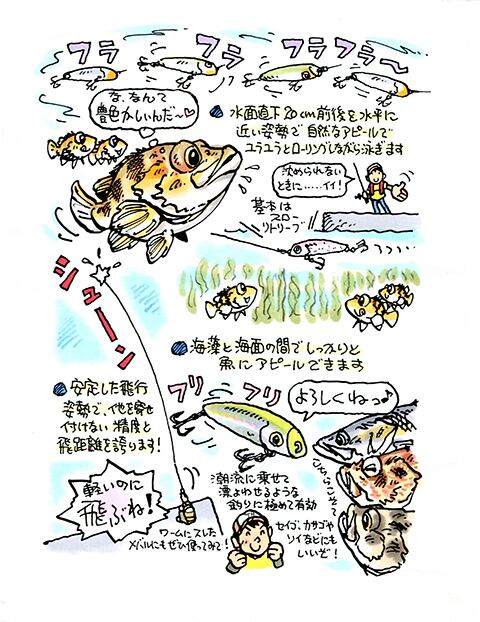 フラ フラ フラフラ〜
な、なんて
艶かしいんだ〜♡
水面直下20cm前後を水平に
近い姿勢で自然なアピールで
ユラユラとローリングしながら泳ぎます
沈められない
ときに……イイ!
基本は
スロー
リトリーブ
つつつ…
シューーン
海藻と海面の間でしっかりと
魚にアピールできます
安定した飛行
姿勢で、他を寄せ
付けない精度と
飛距離を誇ります!
フリ フリ
よろしくねっ♪
こちらこそって
軽いのに
飛ぶね!
潮流に乗せて
漂よわせるような
釣りに極めて有効
ワームにスレた
メバルにもぜひ使ってみて!
セイゴ、カサゴや
ソイなどにも
いいぞ!